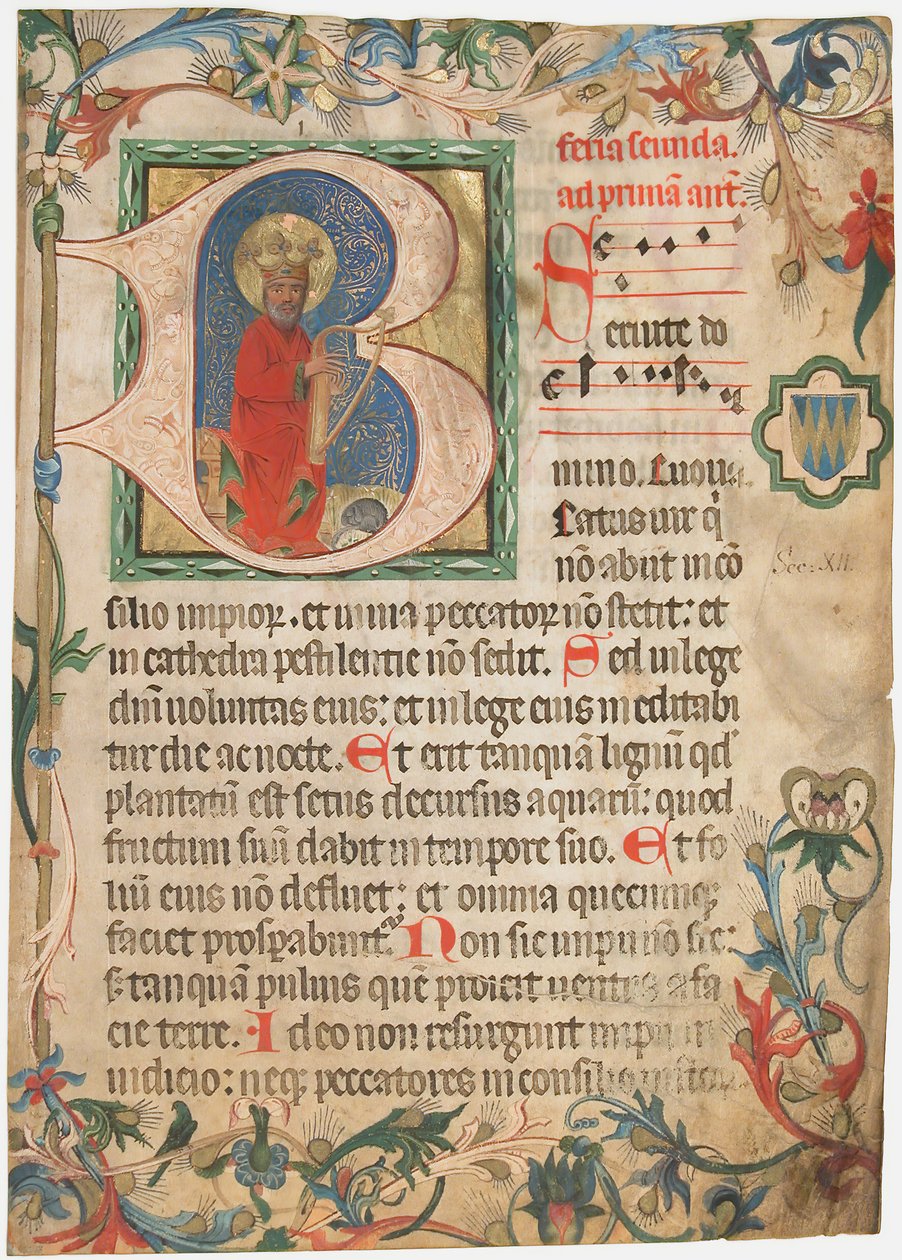 feria secunda.
ad primā ant̄.
Seruite do
mino. Euoua
B
Eatus uir qⁱ
nō abiit in cō
Sec: XII.
silio impioꝝ. et in uia peccatoꝝ nō stetit: et
in cathedra pestilentie nō sedit. Sed in lege
dn̄i uoluntas eius: et in lege eius meditabi
tur die ac nocte. Et erit tanquā lignū qd̄
plantatū est secus decursus aquarū: quod
fructum suū dabit in tempore suo. Et fo
liū eius nō defluet: et omnia quecumqꝫ
faciet prosꝑabunt᷑. Non sic impii nō sic:
sꝫ tanquā puluis quē proicit uentus a fa
cie terre. Ideo non resurgunt impii in
iudicio: neqꝫ peccatores in consilio